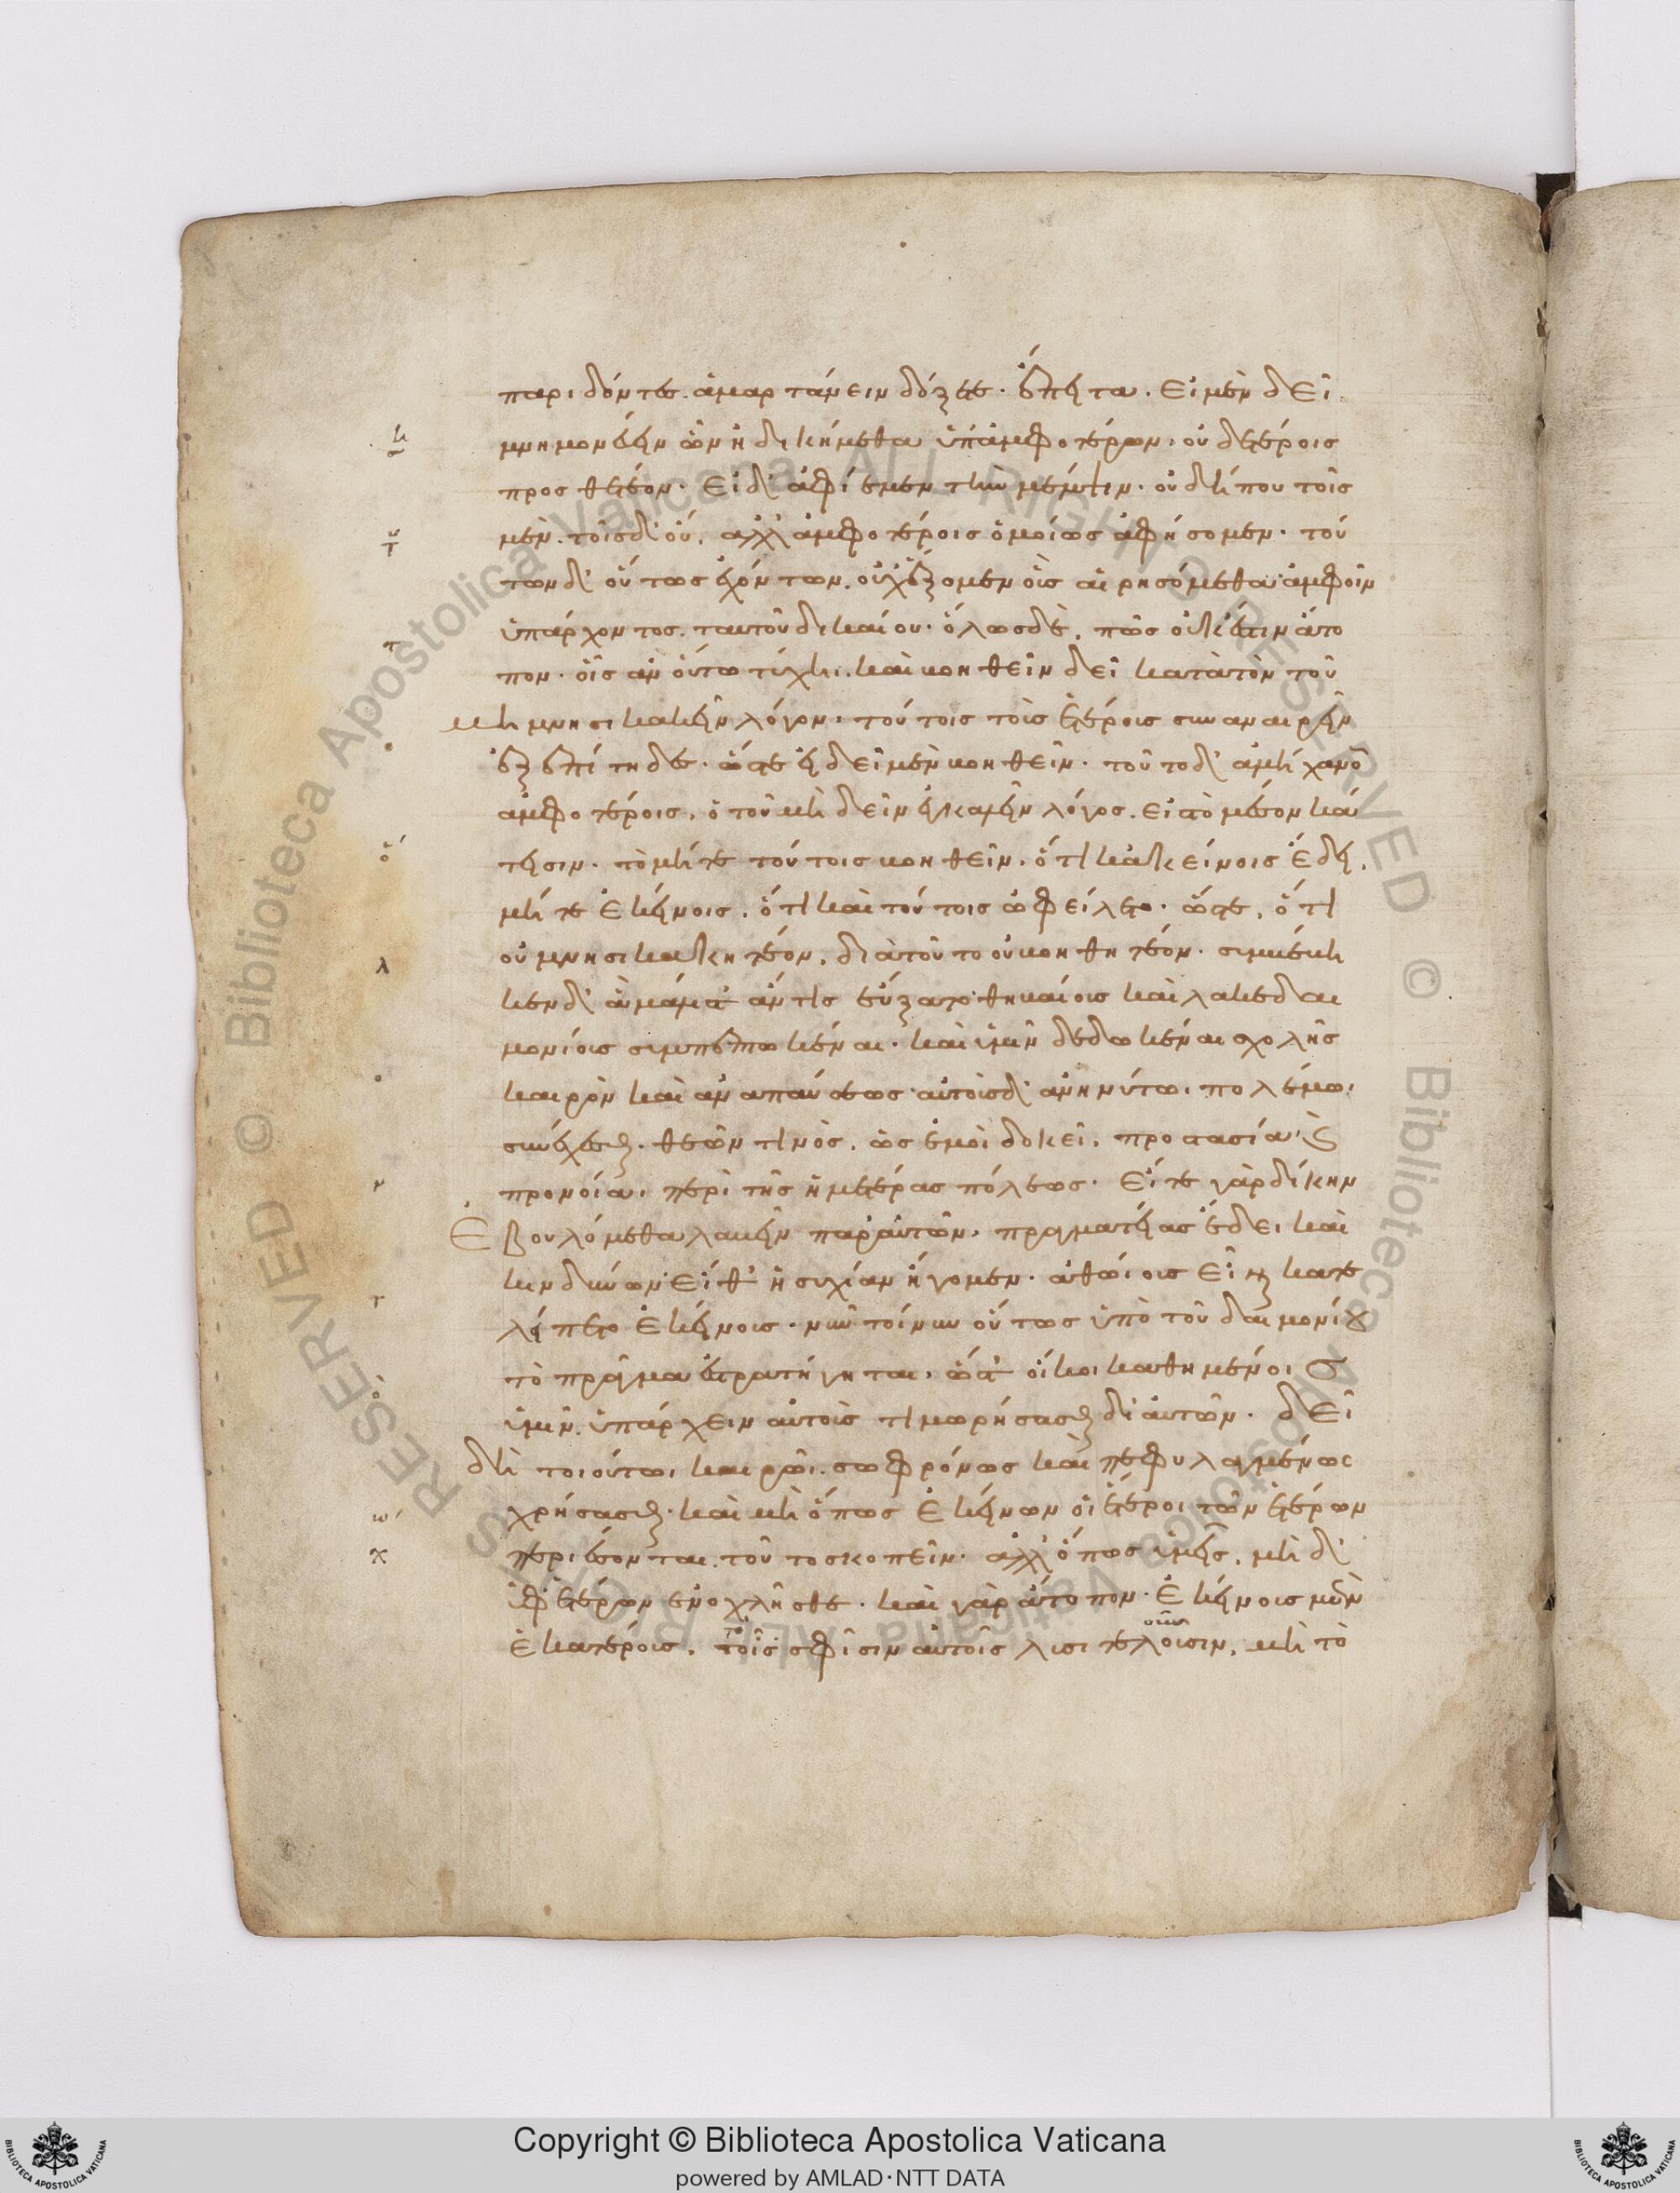 παριδόντες. ἁμαρτάνειν δόξετε. ἔπειτα. εἰ μὲν δεῖ
μνημονεύειν ὧν ἠδικήμεθα ὑπ' ἀμφοτέρων, οὐδετέροις
προσθετέον. εἰ δ' ἀφίεμεν τὴν μέμψιν. οὐ δήπου τοῖς
μὲν. τοῖς δ' οὔ. ἀλλ' ἀμφοτέροις ὁμοίως ἀφήσομεν. τού
των δ' οὕτως ἐχόντων. οὐχ ἕξομεν οἷς αἱρησόμεθα ἀμφοῖν
ὑπάρχοντος. ταυτοῦ δικαίου. ὅλως δὲ, πῶς οὐκ ἔστιν ἄτο
πον. οἷς ἂν οὕτω τύχῃ. καὶ βοηθεῖν δεῖ κατὰ τὸν τοῦ
μὴ μνησικακεῖν λόγον. τούτοις τοῖς ἑτέροις συναναιρεῖν
ἐξεπίτηδες. ὥστε εἰ δεῖ μὲν βοηθεῖν. τοῦτο δ' ἀμήχανον
ἀμφοτέροις. ὁ τοῦ μὴ δεῖν ἐγκαλεῖν λόγος. εἰς τὸ μέσον κα
τεισιν. τὸ μήτε τούτοις βοηθεῖν. ὅτι κἀκείνοις ἔδει,
μήτε ἐκείνοις. ὅτι καὶ τούτοις ὠφείλετο. ὥστε, ὅτι
οὐ μνησικακητέον. διὰ τοῦτο οὐ βοηθητέον. συμβέβη
κεν δ' ἃ μάλιστ' ἄν τις εὔξαιτο θηβαίοις καὶ λακεδαι
μονίοις συμπεπτωκέναι. καὶ ὑμῖν δεδωκέναι σχολῆς
καιρὸν καὶ ἀναπαύσεως αὐτοῖς δ' ἀνηνύτωι πολέμωι
συνέχεσθαι. θεῶν τινὸς, ὡς ἐμοὶ δοκεῖ, προστασίαι καὶ
προνοίαι, περὶ τῆς ἡμετέρας πόλεως. εἴτε γὰρ δίκην
ἐβουλόμεθα λαβεῖν παρ' αὐτῶν. πραγματείας ἔδει καὶ
κινδύνων εἴθ' ἡσυχίαν ἤγομεν. ἀθώιοις εἶναι κατε
λείπετο ἐκείνοις. νῦν τοίνυν οὕτως ὑπὸ τοῦ δαιμονίου
τὸ πρᾶγμα ἐστρατήγηται. ὥστ' οἴκοι καθημένοις
ὑμῖν. ὑπάρχειν αὐτοῖς τιμωρήσασθαι δι' αὑτῶν. δεῖ
δὴ τοιούτωι καιρῶι. σωφρόνως καὶ πεφυλαγμένως
χρήσασθαι. καὶ μὴ ὅπως ἐκείνων οἱ ἕτεροι τῶν ἑτέρων
περιέσονται. τοῦτο σκοπεῖν. ἀλλ' ὅπως ὑμεῖς. μὴ δι'
ὑφ' ἑτέρων ἐνοχλῆσθε. καὶ γὰρ ἄτοπον. ἐκείνοις μὲν
ἑκατέροις. τοῖς σφίσιν αὐτοῖς λυσιτελοῦσιν. μὴ τὸ